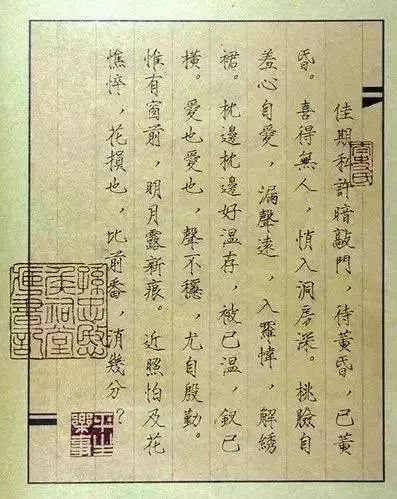 佳期私許暗敲門，待黃昏，已黃
昏。喜得無人，悄入洞房深。桃臉自
羞心自愛，漏聲遠，入羅幃，解繡
裙。枕邊枕邊好溫存，被已溫，釵已
橫。愛也愛也，聲不穩，尤自殷勤。
惟有窗前，明月露新痕。近照怕及花
憔悴，花損也，比前番，消幾分？
孫忠愍
侯祠堂
藏書記